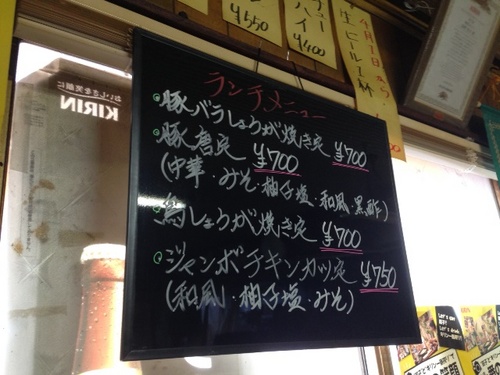 ¥550
¥400
生ビール1杯
4月1日から
おいしさを笑顔に
KIRIN
ランチメニュー
豚バラしょうが焼き定 ¥700
豚唐定 ¥700
(中華・みそ・柚子塩・和風・黒酢)
鳥しょうが焼き定 ¥700
ジャンボチキンカツ定 ¥750
(和風・柚子塩・みそ)